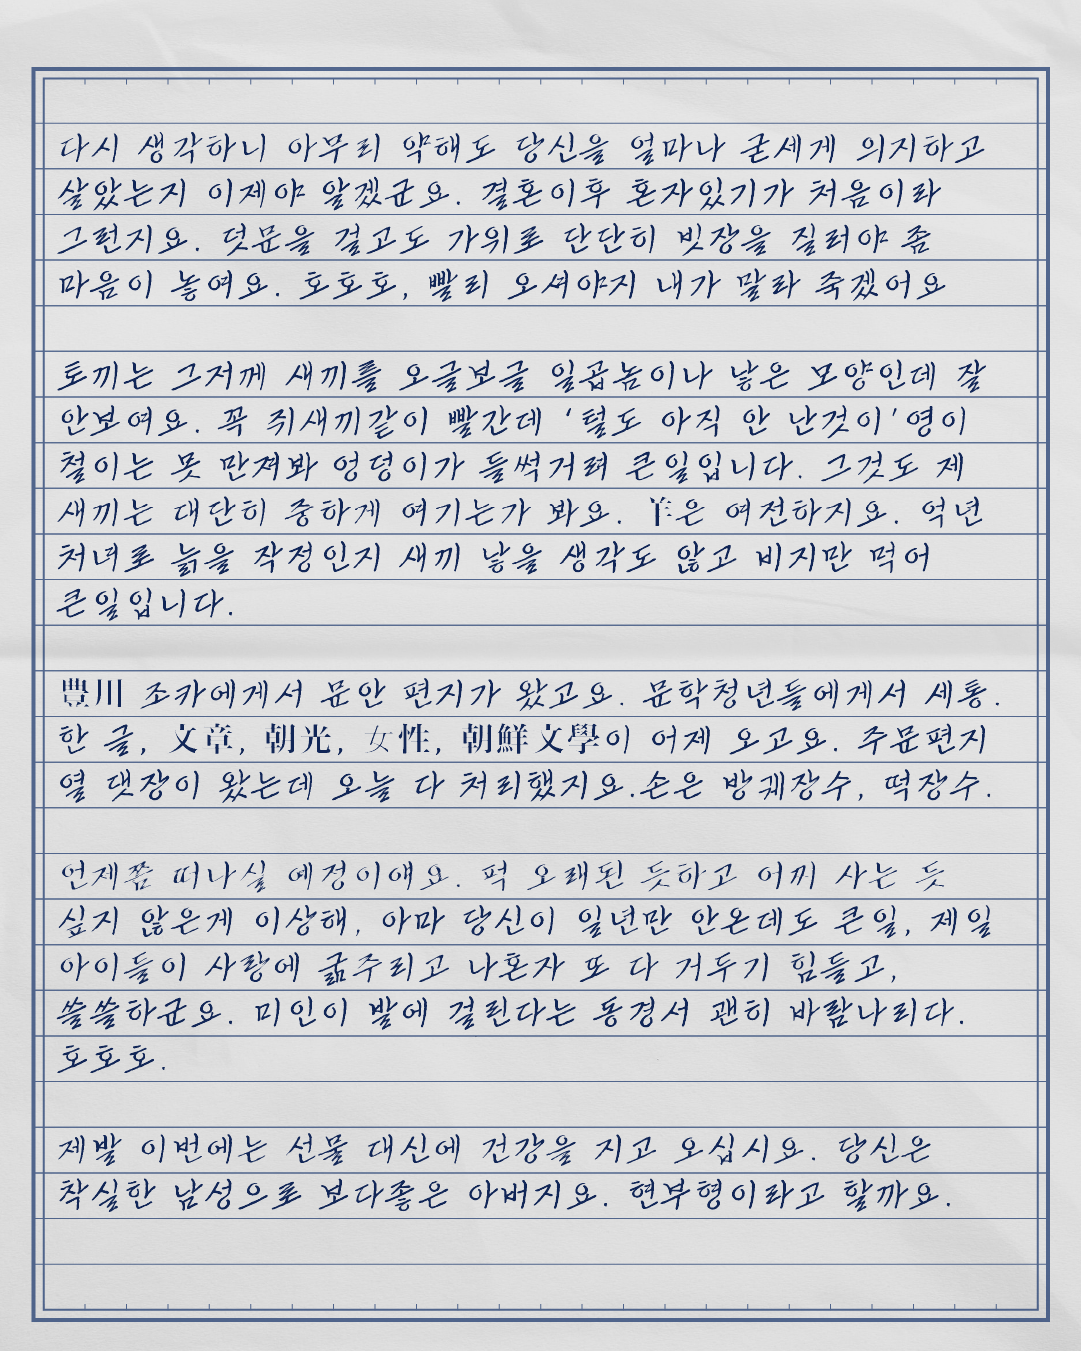 다시 생각하니 아무리 약해도 당신을 얼마나 굳세게 의지하고
살았는지 이제야 알겠군요. 결혼이후 혼자있기가 처음이라
그런지요. 덧문을 걸고도 가위로 단단히 빗장을 질러야 좀
마음이 놓여요. 호호호, 빨리 오셔야지 내가 말라 죽겠어요
토끼는 그저께 새끼를 오글보글 일곱놈이나 낳은 모양인데 잘
안보여요. 꼭 쥐새끼같이 빨간데 ‘털도 아직 안 난것이’영이
철이는 못 만져봐 엉덩이가 들썩거려 큰일입니다. 그것도 제
새끼는 대단히 중하게 여기는가 봐요. 羊은 여전하지요. 억년
처녀로 늙을 작정인지 새끼 낳을 생각도 않고 비지만 먹어
큰일입니다.
豊川 조카에게서 문안 편지가 왔고요. 문학청년들에게서 세통.
한 글, 文章, 朝光, 女性, 朝鮮文學이 어제 오고요. 주문편지
열 댓장이 왔는데 오늘 다 처리했지요.손은 방궤장수, 떡장수.
언제쯤 떠나실 예정이얘요. 퍽 오래된 듯하고 어끼 사는 듯
싶지 않은게 이상해, 아마 당신이 일년만 안온데도 큰일, 제일
아이들이 사랑에 굶주리고 나혼자 또 다 거두기 힘들고,
쓸쓸하군요. 미인이 발에 걸린다는 동경서 괜히 바람나리다.
호호호.
제발 이번에는 선물 대신에 건강을 지고 오십시요. 당신은
착실한 남성으로 보다좋은 아버지요. 현부형이라고 할까요.